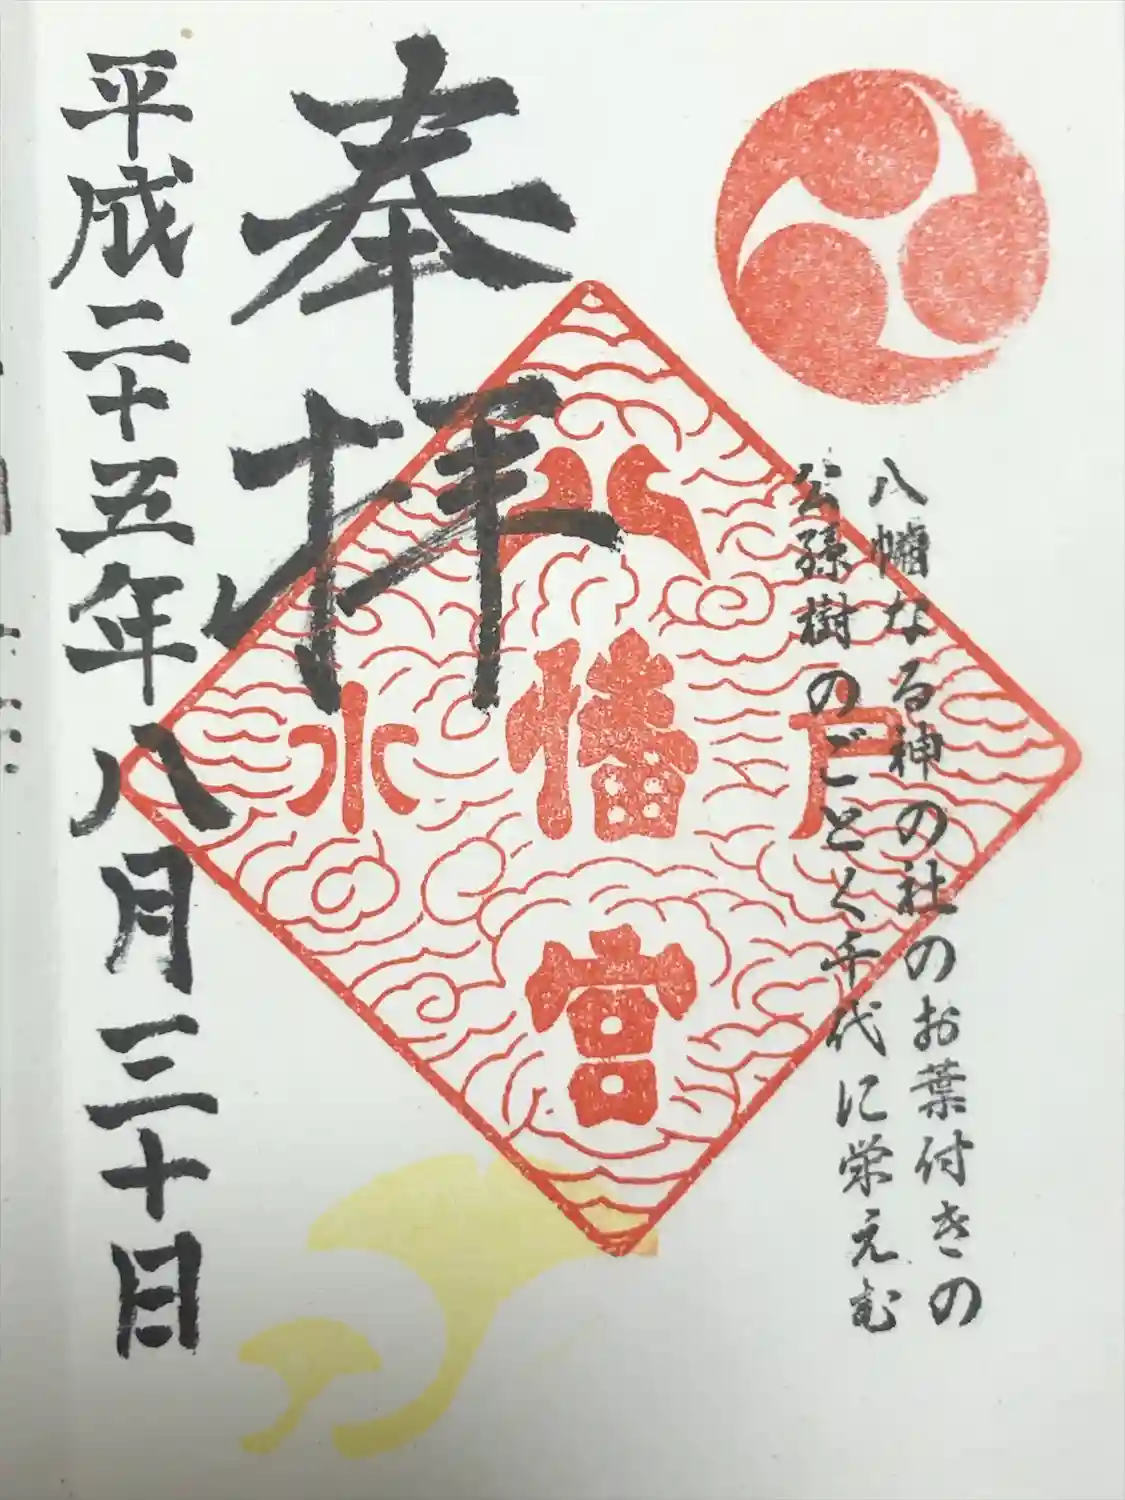 八幡なる神の社のお葉付きの
公孫樹のごとく千代に栄えむ
奉拝
水戸
八幡宮
平成二十五年八月三十日